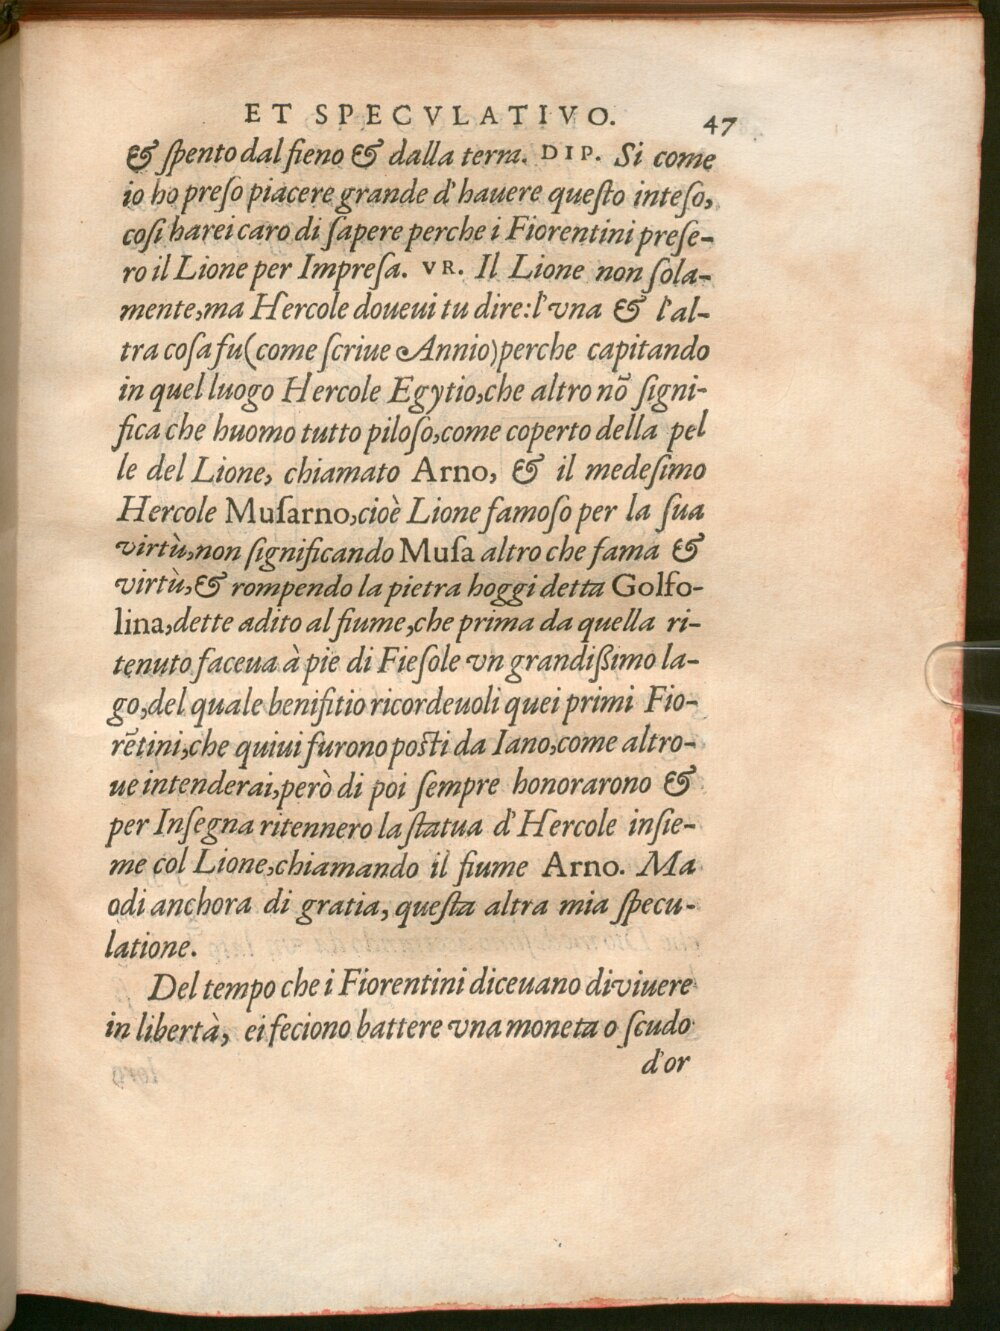 ET SPECVLATIVO. 47
& ſpento dal fieno & dalla terra. DIP. Si come
io ho preſo piacere grande d'hauere queſto inteſo,
coſi harei caro di ſapere perche i Fiorentini preſe-
ro il Lione per Impreſa. VR. Il Lione non ſola-
mente,ma Hercole doueui tu dire:l'vna & l'al-
tra coſa fu(come ſcriue Annio)perche capitando
in quel luogo Hercole Egytio,che altro nõ ſigni-
fica che huomo tutto piloſo,come coperto della pel
le del Lione, chiamato Arno, & il medeſimo
Hercole Muſarno,cioè Lione famoſo per la ſua
virtù,non ſignificando Muſa altro che fama &
virtù,& rompendo la pietra hoggi detta Golfo-
lina,dette adito al fiume,che prima da quella ri-
tenuto faceua à pie di Fieſole vn grandiſſimo la-
go,del quale benifitio ricordeuoli quei primi Fio-
rẽtini,che quiui furono poſti da Iano,come altro-
ue intenderai,però di poi ſempre honorarono &
per Inſegna ritennero la ſtatua d'Hercole inſie-
me col Lione,chiamando il fiume Arno. Ma
odi anchora di gratia, queſta altra mia ſpecu-
latione.
Del tempo che i Fiorentini diceuano di viuere
in libertà, ei feciono battere vna moneta o ſcudo
d'or